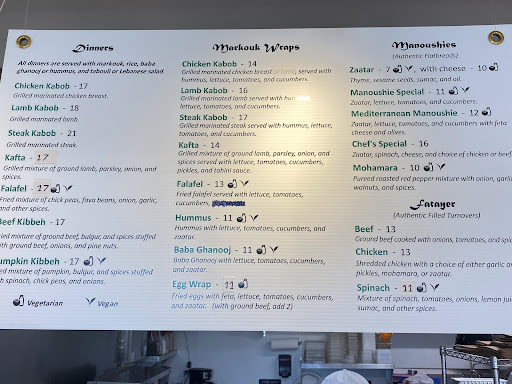 Dinners
All dinners are served with markouk, rice, baba
ghanooj or hummus, and tabouli or Lebanese salad
Chicken Kabob - 17
Grilled marinated chicken breast.
Lamb Kabob - 18
Grilled marinated lamb.
Steak Kabob - 21
Grilled marinated steak.
Kafta - 17
Grilled mixture of ground lamb, parsley, onion, and
spices.
Falafel - 17
Fried mixture of chick peas, fava beans, onion, garlic,
and other spices.
Beef Kibbeh - 17
Fried mixture of ground beef, bulgur, and spices stuffed
with ground beef, onions, and pine nuts.
Pumpkin Kibbeh - 17
mixture of pumpkin, bulgur, and spices stuffed
with spinach, chick peas, and onions.
Vegetarian Vegan
Markouk Wraps
Chicken Kabob - 14
Grilled marinated chicken breast served with
hummus, lettuce, tomatoes, and cucumbers.
Lamb Kabob - 16
Grilled marinated lamb served with
lettuce, tomatoes, and cucumbers.
Steak Kabob - 17
Grilled marinated steak served with hummus, lettuce,
tomatoes, and cucumbers.
Kafta - 14
Grilled mixture of ground lamb, parsley, onion, and
spices served with lettuce, tomatoes, cucumbers,
pickles, and tahini sauce.
Falafel - 13
Fried falafel served with lettuce, tomatoes,
cucumbers,
Hummus - 11
Hummus with lettuce, tomatoes, cucumbers, and
zaatar.
Baba Ghanooj - 11
Baba Ghanooj with lettuce, tomatoes, cucumbers,
and zaatar.
Egg Wrap - 11
Fried eggs with feta, lettuce, tomatoes, cucumbers,
and zaatar. (with ground beef, add 2)
Manoushies
(Authentic Flatbreads)
Zaatar - 7 , with cheese - 10
Thyme, sesame seeds, sumac, and oil.
Manoushie Special - 11
Zaatar, lettuce, tomatoes, and cucumbers.
Mediterranean Manoushie - 12
Zaatar, lettuce, tomatoes, and cucumbers with feta
cheese and olives.
Chef's Special - 16
Zaatar, spinach, cheese, and choice of chicken or beef
Mohamara - 10
Pureed roasted red pepper mixture with onion, garlic
walnuts, and spices.
Fatayer
(Authentic Filled Turnovers)
Beef - 13
Ground beef cooked with onions, tomatoes, and
Chicken - 13
Shredded chicken with a choice of either garlic or
pickles, mohamara, or zaatar.
Spinach - 11
Mixture of spinach, tomatoes, onions, lemon
sumac, and other spices.